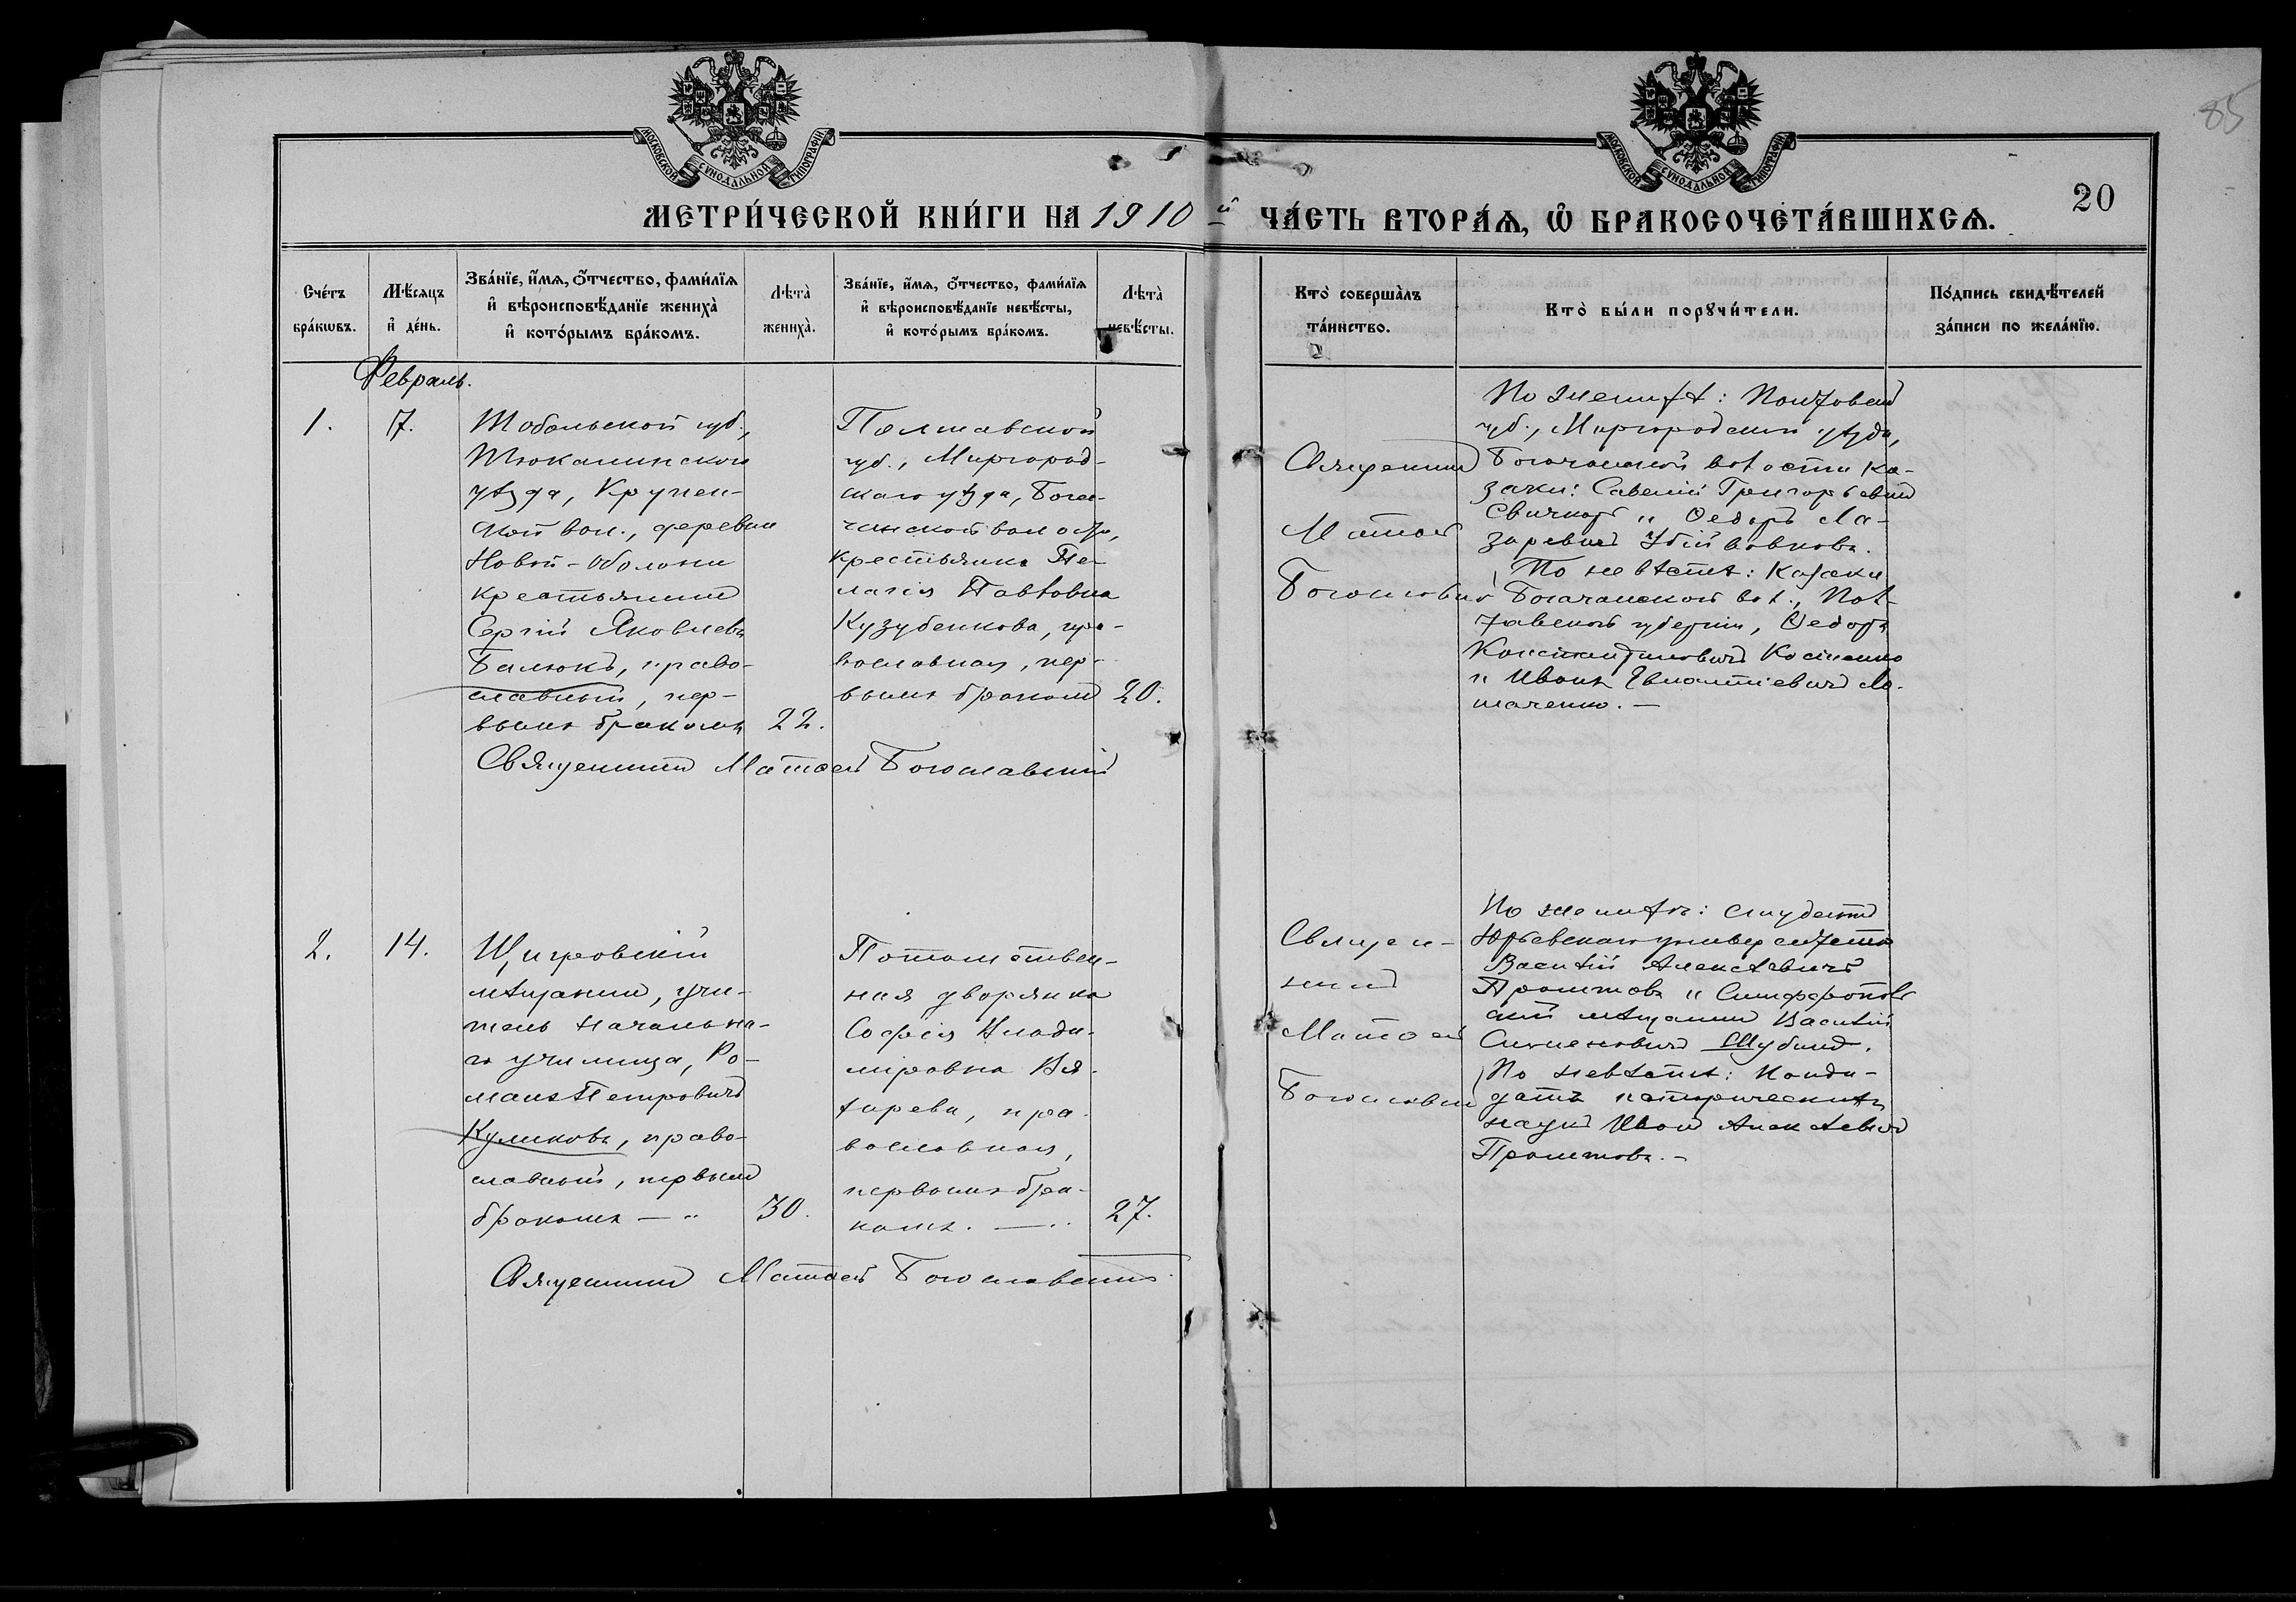 85
МОСКОВСКОЙ СѴНОДАЛЬНОЙ ТИПОГРАФІИ
МОСКОВСКОЙ СѴНОДАЛЬНОЙ ТИПОГРАФІИ
20
МЕТРИ́ЧЕСКОЙ КНИ́ГИ НА 1910й ЧА́СТЬ ВТОРА́Ѧ, Ѽ БРАКОСОЧЕТА́ВШИХСѦ.
Сче́тъ бра́кѡвъ.
Мѣ́сѧцъ и҆ де́нь.
Зва́нїе, и҆́мѧ, ѻ҆́тчество, фами́лїѧ
и҆ вѣроисповѣ́данїе женихà
и҆ кото́рымъ бра́комъ.
Лѣтà женихà.
Зва́нїе, и҆́мѧ, ѻ҆́тчество, фами́лїѧ
и҆ вѣроисповѣ́данїе невѣ́сты,
и҆ кото́рымъ бра́комъ.
Лѣтà невѣ́сты.
Кто̀ соверша̀лъ та́инство.
Кто̀ бы́ли порꙋчи́тели.
По́дпись свидѣ́телей
за́писи по жела́нїю.
Февраль.
1.
7.
Тобольской губ.,
Тюкалинскаго
уѣзда, Крупен-
ской вол., деревни
Новой-Оболони
крестьянинъ
Сергій Яковлевъ
Балюкъ, право-
славный, пер-
вымъ бракомъ
22.
Полтавской
губ., Миргород-
скаго уѣзда, Бога-
чанской волости,
крестьянка Пе-
лагія Павловна
Кузубенкова, пра-
вославная, пер-
вымъ бракомъ
20.
Священникъ Матѳей Богословскій
Священникъ
Матѳей
Богословскій
По женихѣ: Полтавской
губ., Миргородскаго уѣзда,
Богачанской волости ка-
заки: Савелій Григорьевичъ
Свичкарь и Ѳедоръ Ла-
заревичъ Убійвовковъ.
По невѣстѣ: казаки
Богачанской вол., Пол-
тавской губерніи, Ѳедоръ
Константиновичъ Костенко
и Иванъ
2.
14.
Щигровскій
мѣщанинъ, учи-
тель начальна-
го училища, Ро-
манъ Петровичъ
Куликовъ, право-
славный, первымъ
бракомъ — „
30.
Потомствен-
ная дворянка
Софія Влади-
міровна Вя-
тирева, пра-
вославная,
первымъ бра-
комъ. — „
27.
Священникъ Матѳей Богословскій
Священ-
никъ
Матѳей
Богословскій
По женихѣ: студентъ
Юрьевскаго университета
Василій Алексѣевичъ
Промтовъ и Симферополь-
скій мѣщанинъ Василій
Семеновичъ Шубинъ.
По невѣстѣ: Канди-
датъ историческихъ
наукъ Иванъ Алексѣевичъ
Промтовъ. —